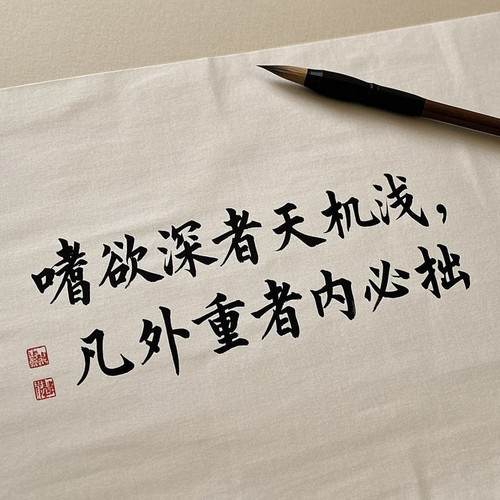 嗜欲深者天机浅，
凡外重者内必拙